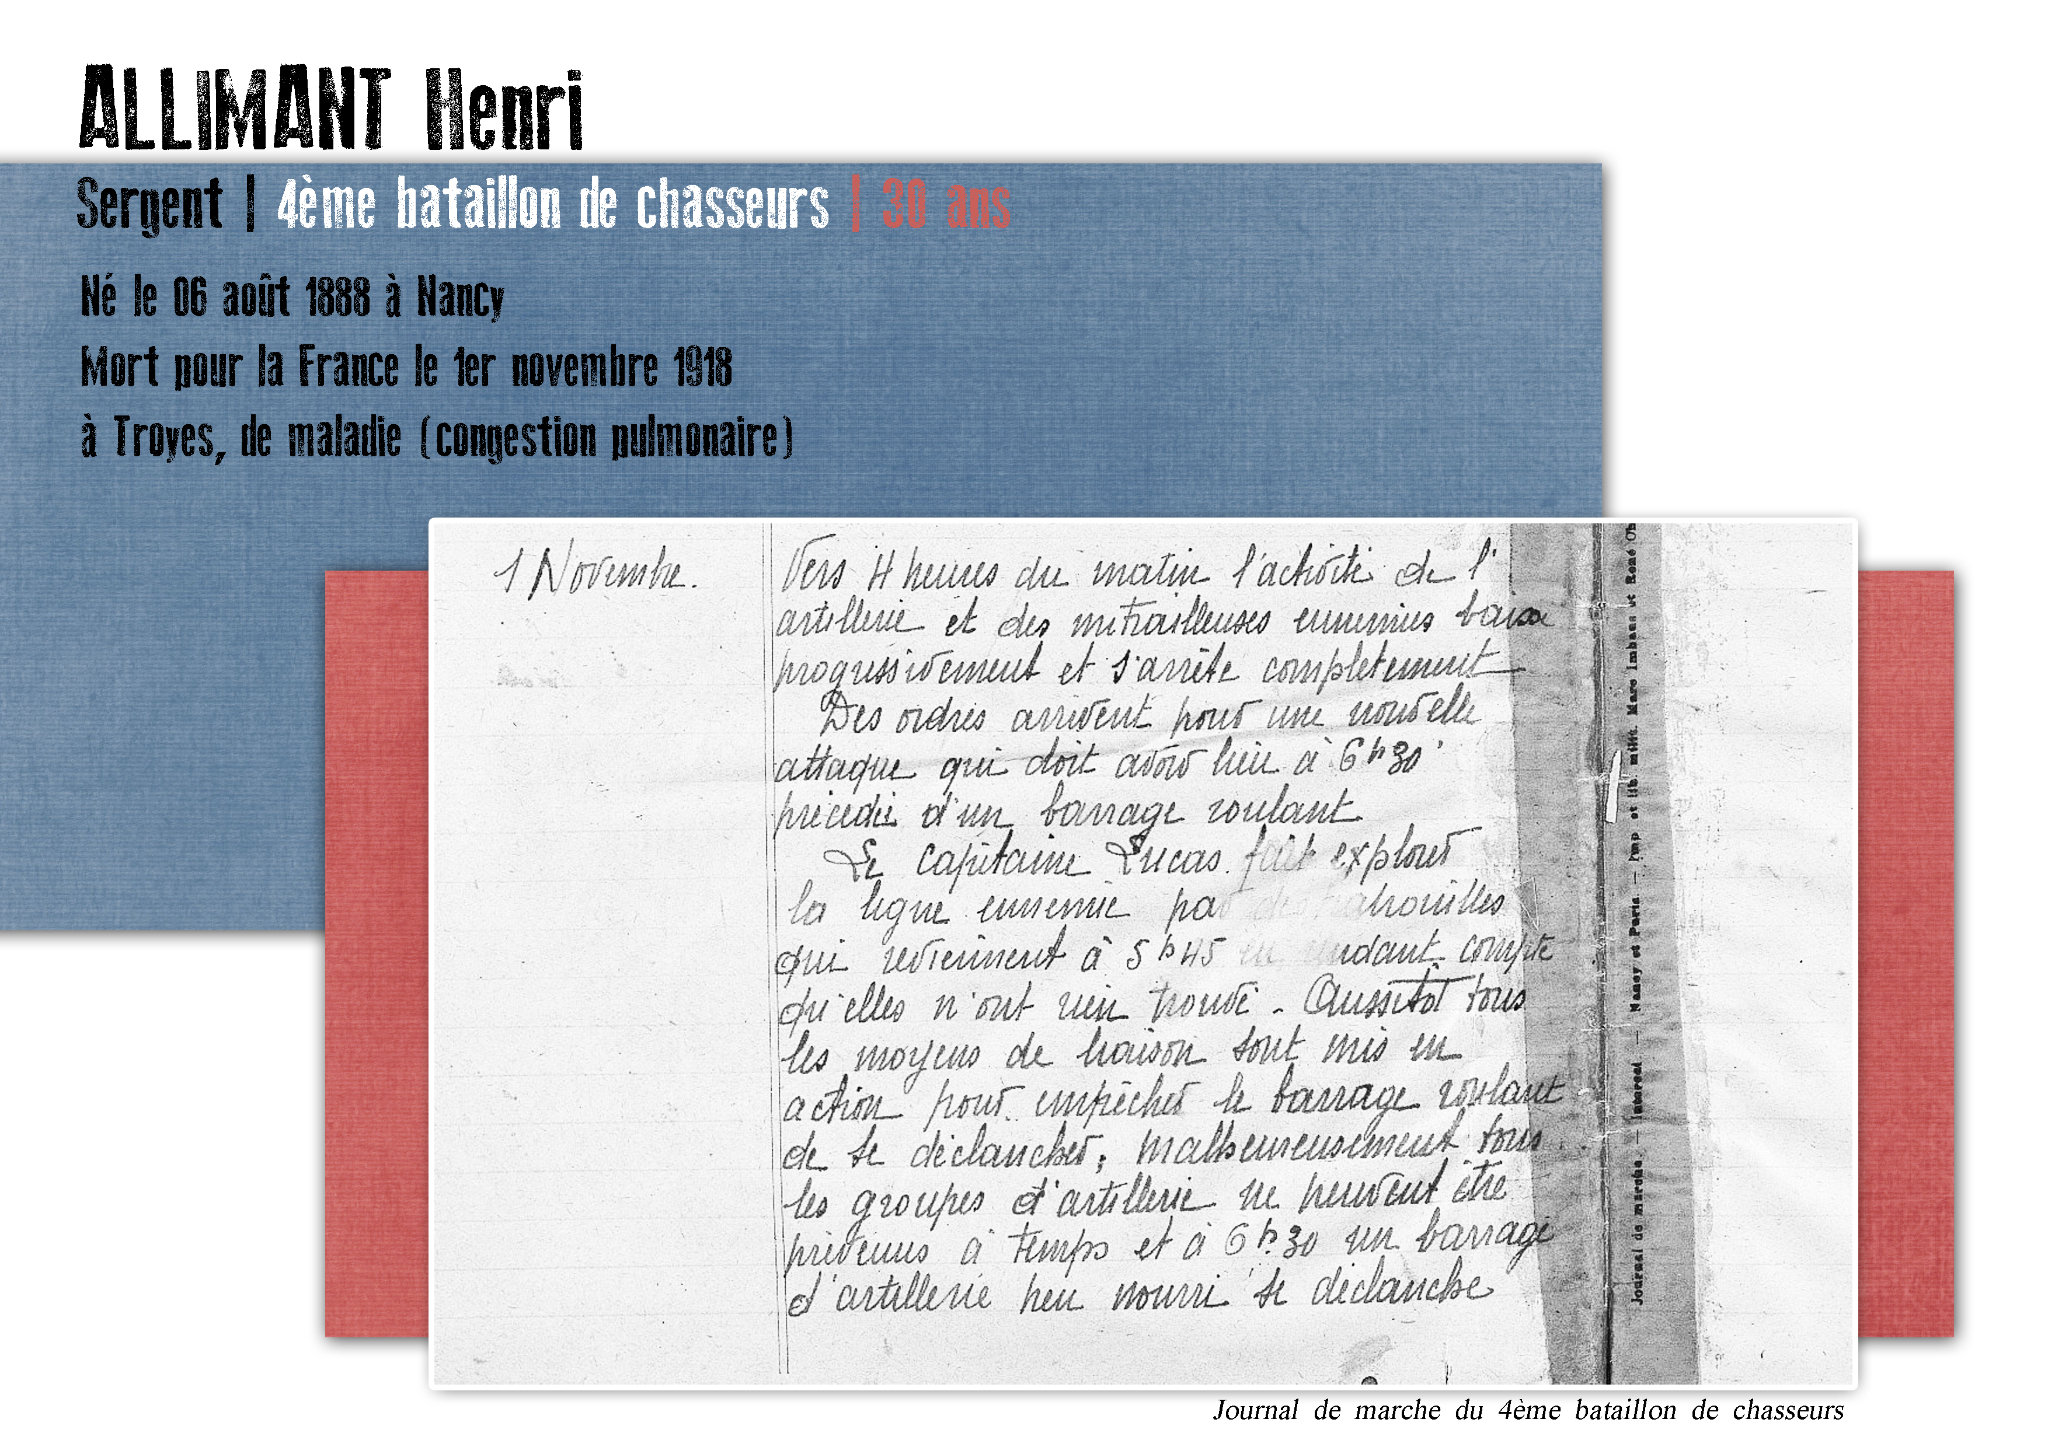 ALLIMANT Henri
Sergent | 4ème bataillon de chasseurs | 30 ans
Né le 06 août 1888 à Nancy
Mort pour la France le 1er novembre 1918
à Troyes, de maladie (congestion pulmonaire)
1 Novembre.
Vers 4 heures du matin l'activité de l'
artillerie et des mitrailleuses ennemies baisse
progressivement et s'arrête complètement
Des ordres arrivent pour une nouvelle
attaque qui doit avoir lieu à 6h30'
précédée d'un barrage roulant
Le capitaine Lucas fait explorer
la ligne ennemie par des patrouilles
qui reviennent à 5h45 en rendant compte
qu'elles n'ont rien trouvé - Aussitôt tous
les moyens de liaison sont mis en
action pour empêcher le barrage roulant
de se déclancher; malheureusement tous
les groupes d'artillerie ne peuvent être
prévenus à temps et à 6h.30 un barrage
d'artillerie peu nourri se déclanche
Journal de marche. — Internal — Nancy et Paris. — Imp et lib. milit. Marc Imhaus et René Ch
Journal de marche du 4ème bataillon de chasseurs